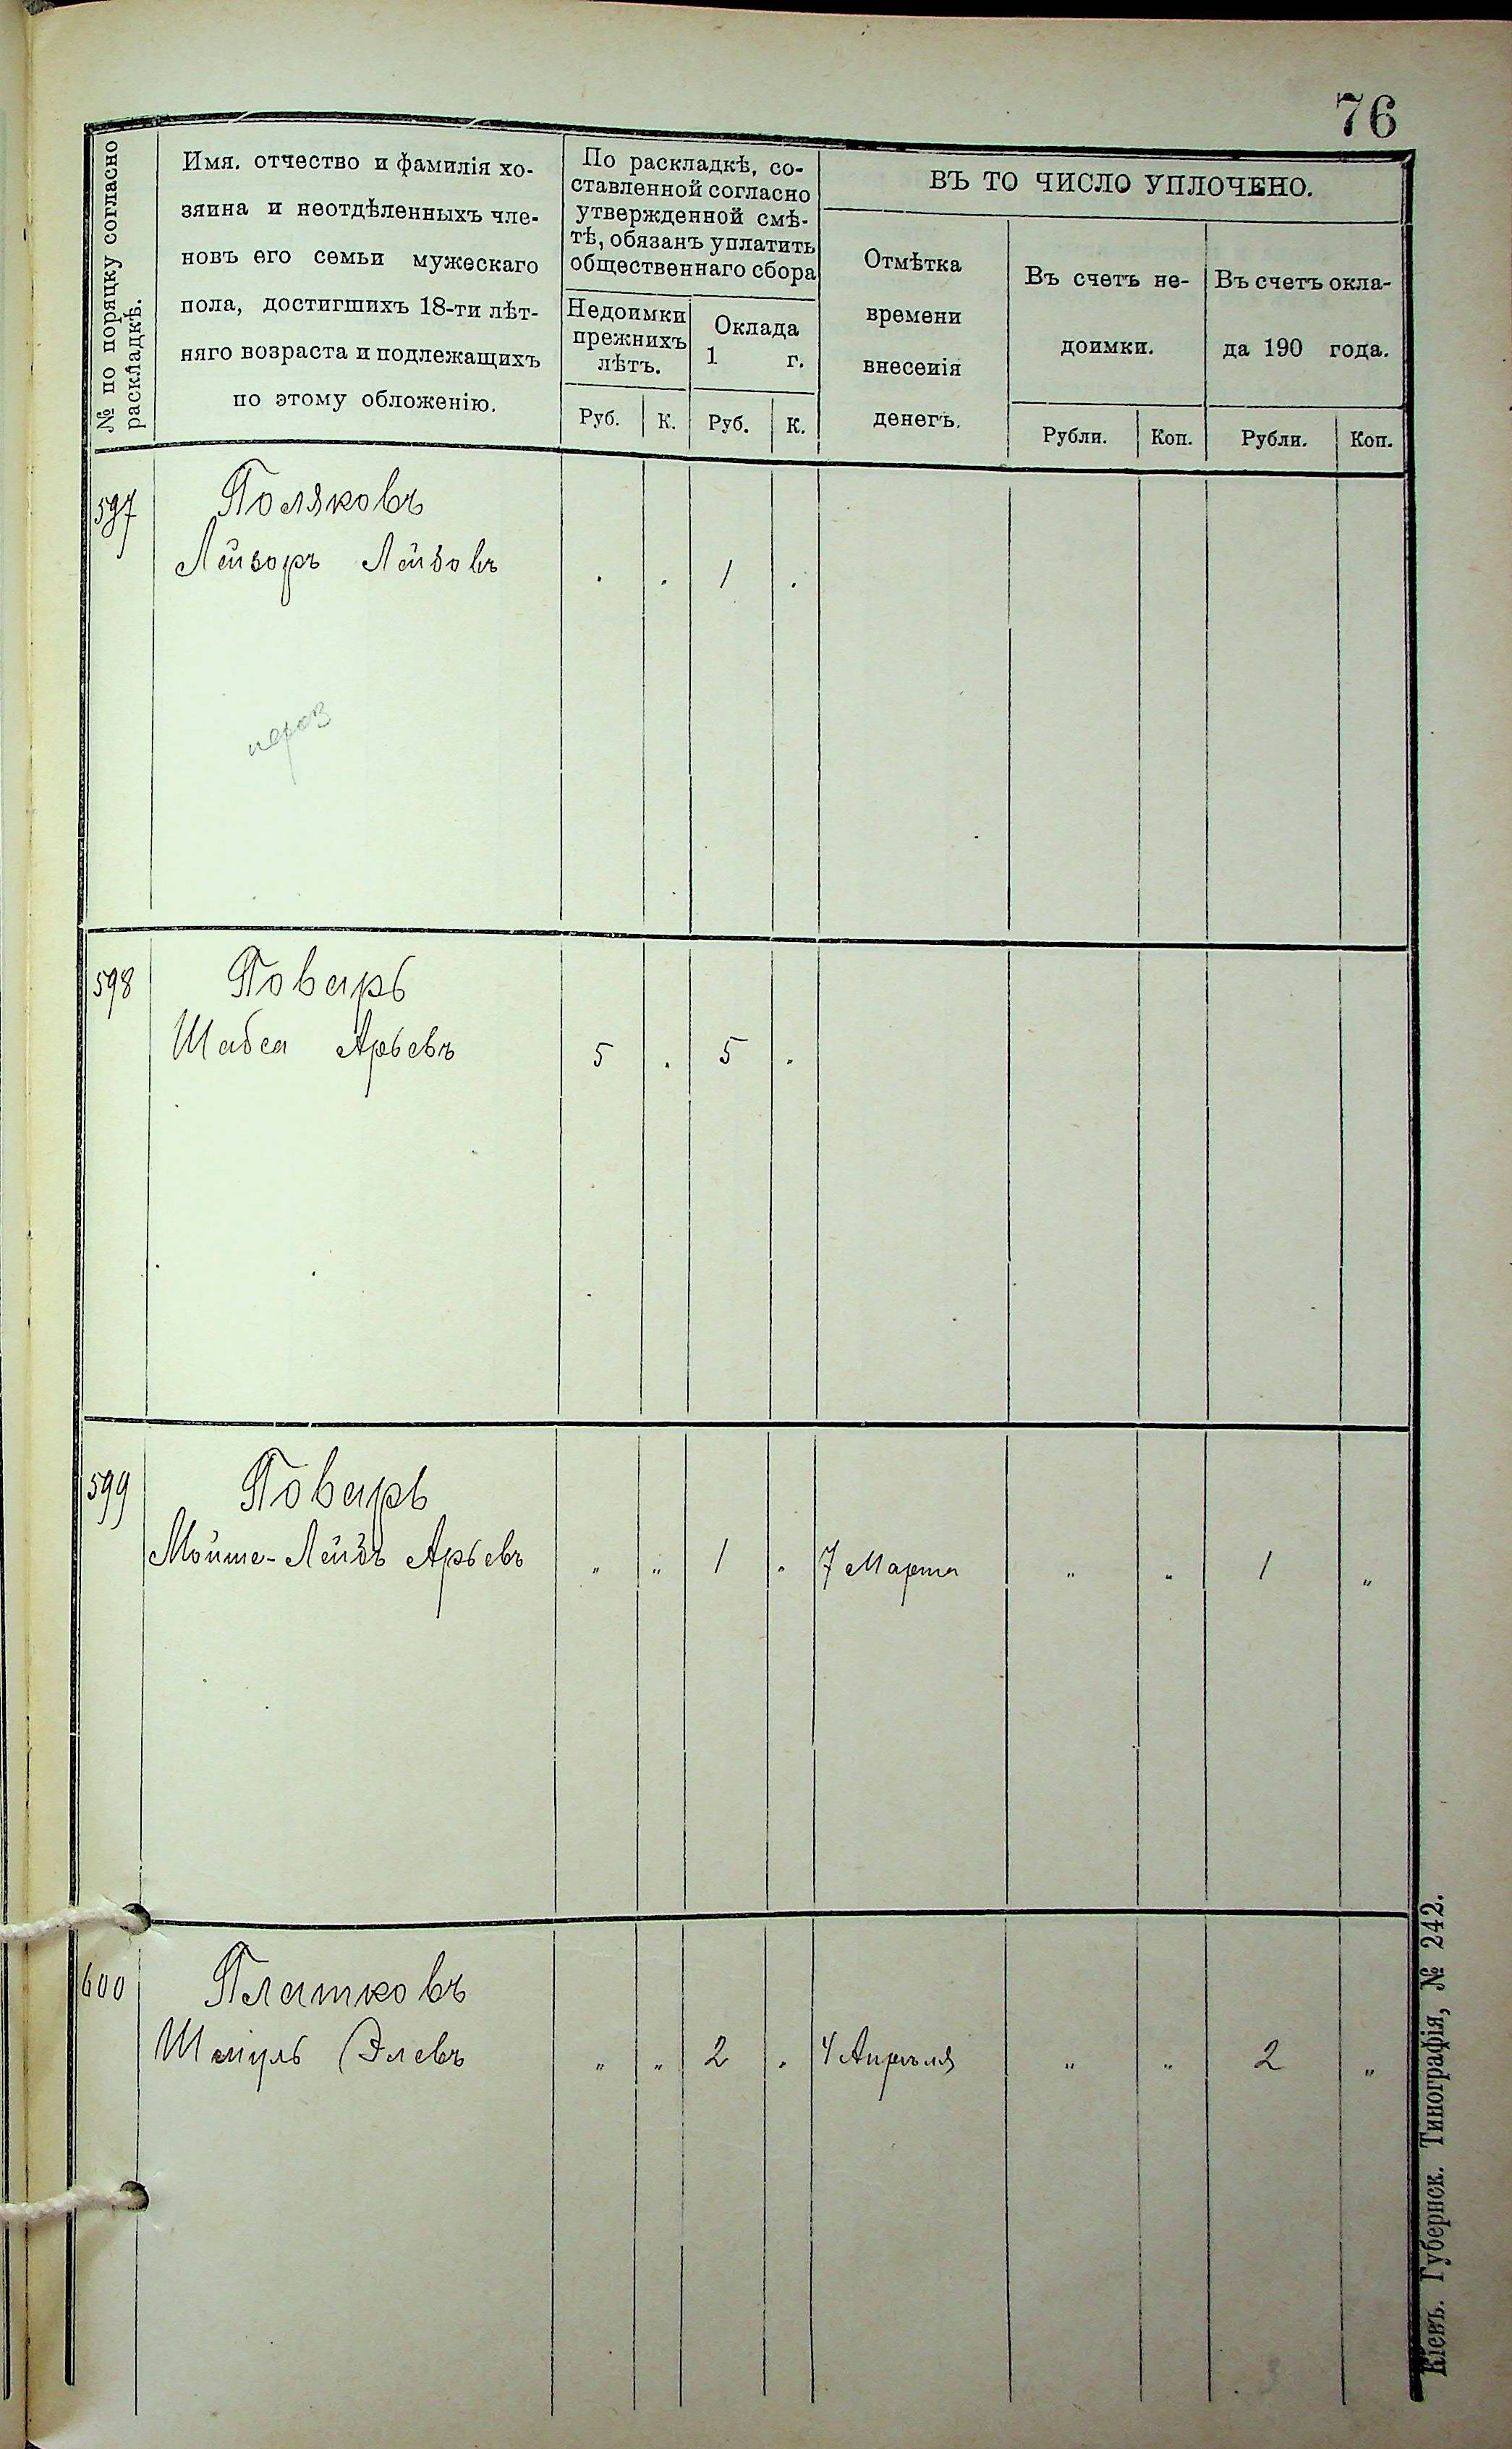 76
№ по порядку согласно
раскладкѣ.
Имя. отчество и фамилія хо-
зяина и неотдѣленныхъ чле-
новъ его семьи мужескаго
пола, достигшихъ 18-ти лѣт-
няго возраста и подлежащихъ
по этому обложенію.
По раскладкѣ, со-
ставленной согласно
утвержденной смѣ-
тѣ, обязанъ уплатить
общественнаго сбора
Недоимки
прежнихъ
лѣтъ.
Оклада
1 г.
Руб. К. Руб. К.
ВЪ ТО ЧИСЛО УПЛОЧЕНО.
Отмѣтка
времени
внесенія
денегъ.
Въ счетъ не-
доимки.
Въ счетъ окла-
да 190 года.
Рубли. Коп. Рубли. Коп.
597 Поляковъ
Лейзоръ Лейбовъ . . 1 .
598 Поварь
Шабса Арьевъ 5 . 5 .
599 Поварь
Мойше-Лейбъ Арьевъ „ „ 1 „ 7 Марта „ „ 1 „
600 Платковъ
Шмуль Элевъ „ „ 2 „ 4 Апрѣля „ „ 2 „
Кіевъ. Губернск. Типографія, № 242.